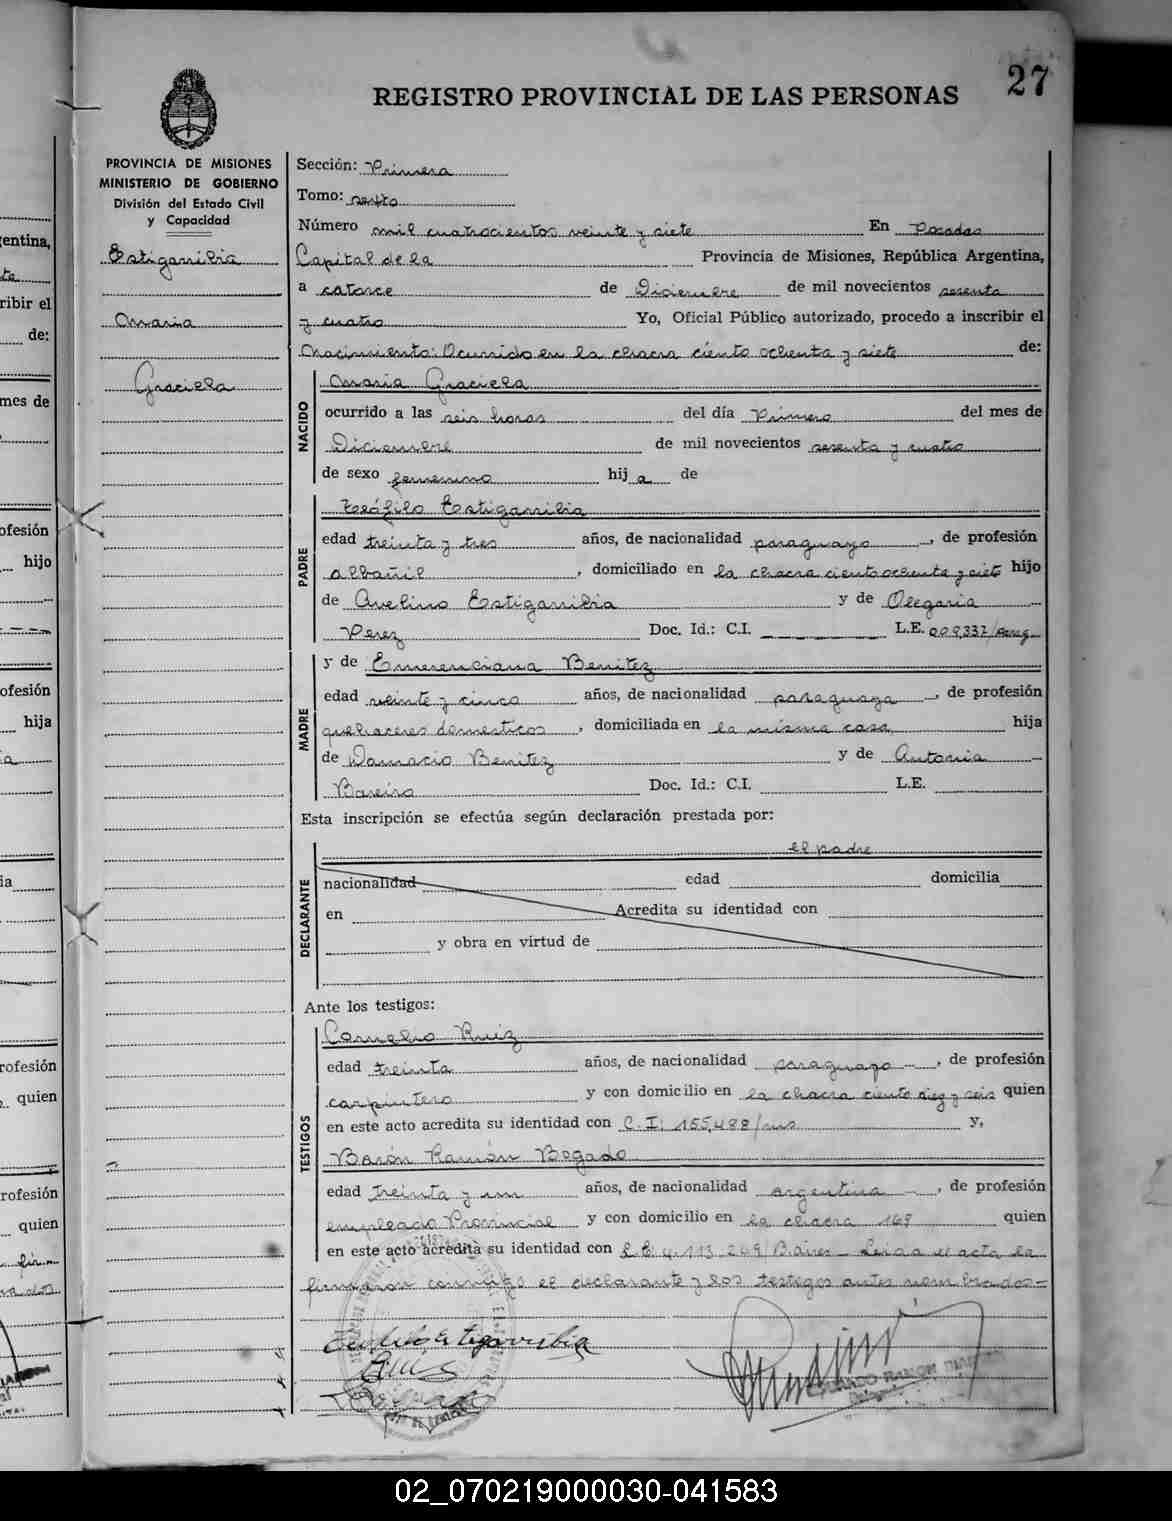 27
REGISTRO PROVINCIAL DE LAS PERSONAS
PROVINCIA DE MISIONES
MINISTERIO DE GOBIERNO
División del Estado Civil
y Capacidad
Estigarribia
Maria
Graciela
Sección: Primera
Tomo: sexto
Número mil cuatrocientos veinte y siete En Posadas
Capital de la Provincia de Misiones, República Argentina,
a catorce de Diciembre de mil novecientos sesenta
y cuatro Yo, Oficial Público autorizado, procedo a inscribir el
Nacimiento: Ocurrido en la chacra ciento ochenta y siete de:
NACIDO
Maria Graciela
ocurrido a las seis horas del día Primero del mes de
Diciembre de mil novecientos sesenta y cuatro
de sexo femenino hija de
PADRE
Teófilo Estigarribia
edad treinta y tres años, de nacionalidad paraguayo, de profesión
albañil, domiciliado en la chacra ciento ochenta y siete hijo
de Avelino Estigarribia y de Olegaria
Perez Doc. Id.: C.I. L.E. 009,337/parag.
MADRE
y de Emerenciana Benitez
edad veinte y cinco años, de nacionalidad paraguaya, de profesión
quehaceres domesticos, domiciliada en la misma casa hija
de Damacio Benitez y de Antonia
Bareiro Doc. Id.: C.I. L.E.
Esta inscripción se efectúa según declaración prestada por:
DECLARANTE
el padre
nacionalidad edad domicilia
en Acredita su identidad con
y obra en virtud de
Ante los testigos:
TESTIGOS
Cornelio Ruiz
edad treinta años, de nacionalidad paraguayo, de profesión
carpintero y con domicilio en la chacra ciento diez y seis quien
en este acto acredita su identidad con C.I: 155,488/mis y,
Basón Ramón Bogado
edad treinta y un años, de nacionalidad argentina, de profesión
empleado Provincial y con domicilio en la chacra 169 quien
en este acto acredita su identidad con L.E. 4.113.269/B.aires - Leida el acta la
firmaron conmigo el declarante y los testigos antes nombrados=
Teofilo Estigarribia
Ruis
02_070219000030-041583